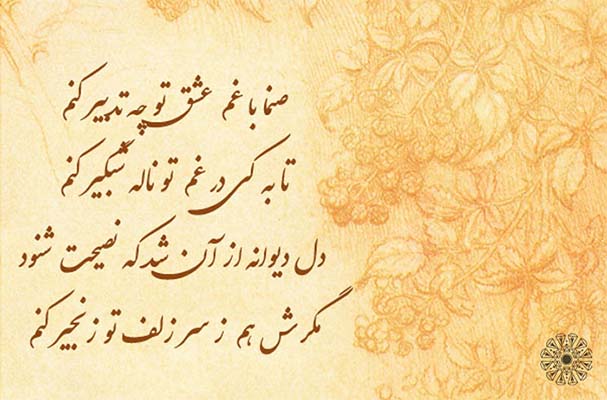 صنما با غم عشق تو چه تدبیر کنم
تا به کی در غم تو ناله شبگیر کنم
دل دیوانه از آن شد که نصیحت شنود
مگرش هم ز سر زلف تو زنجیر کنم